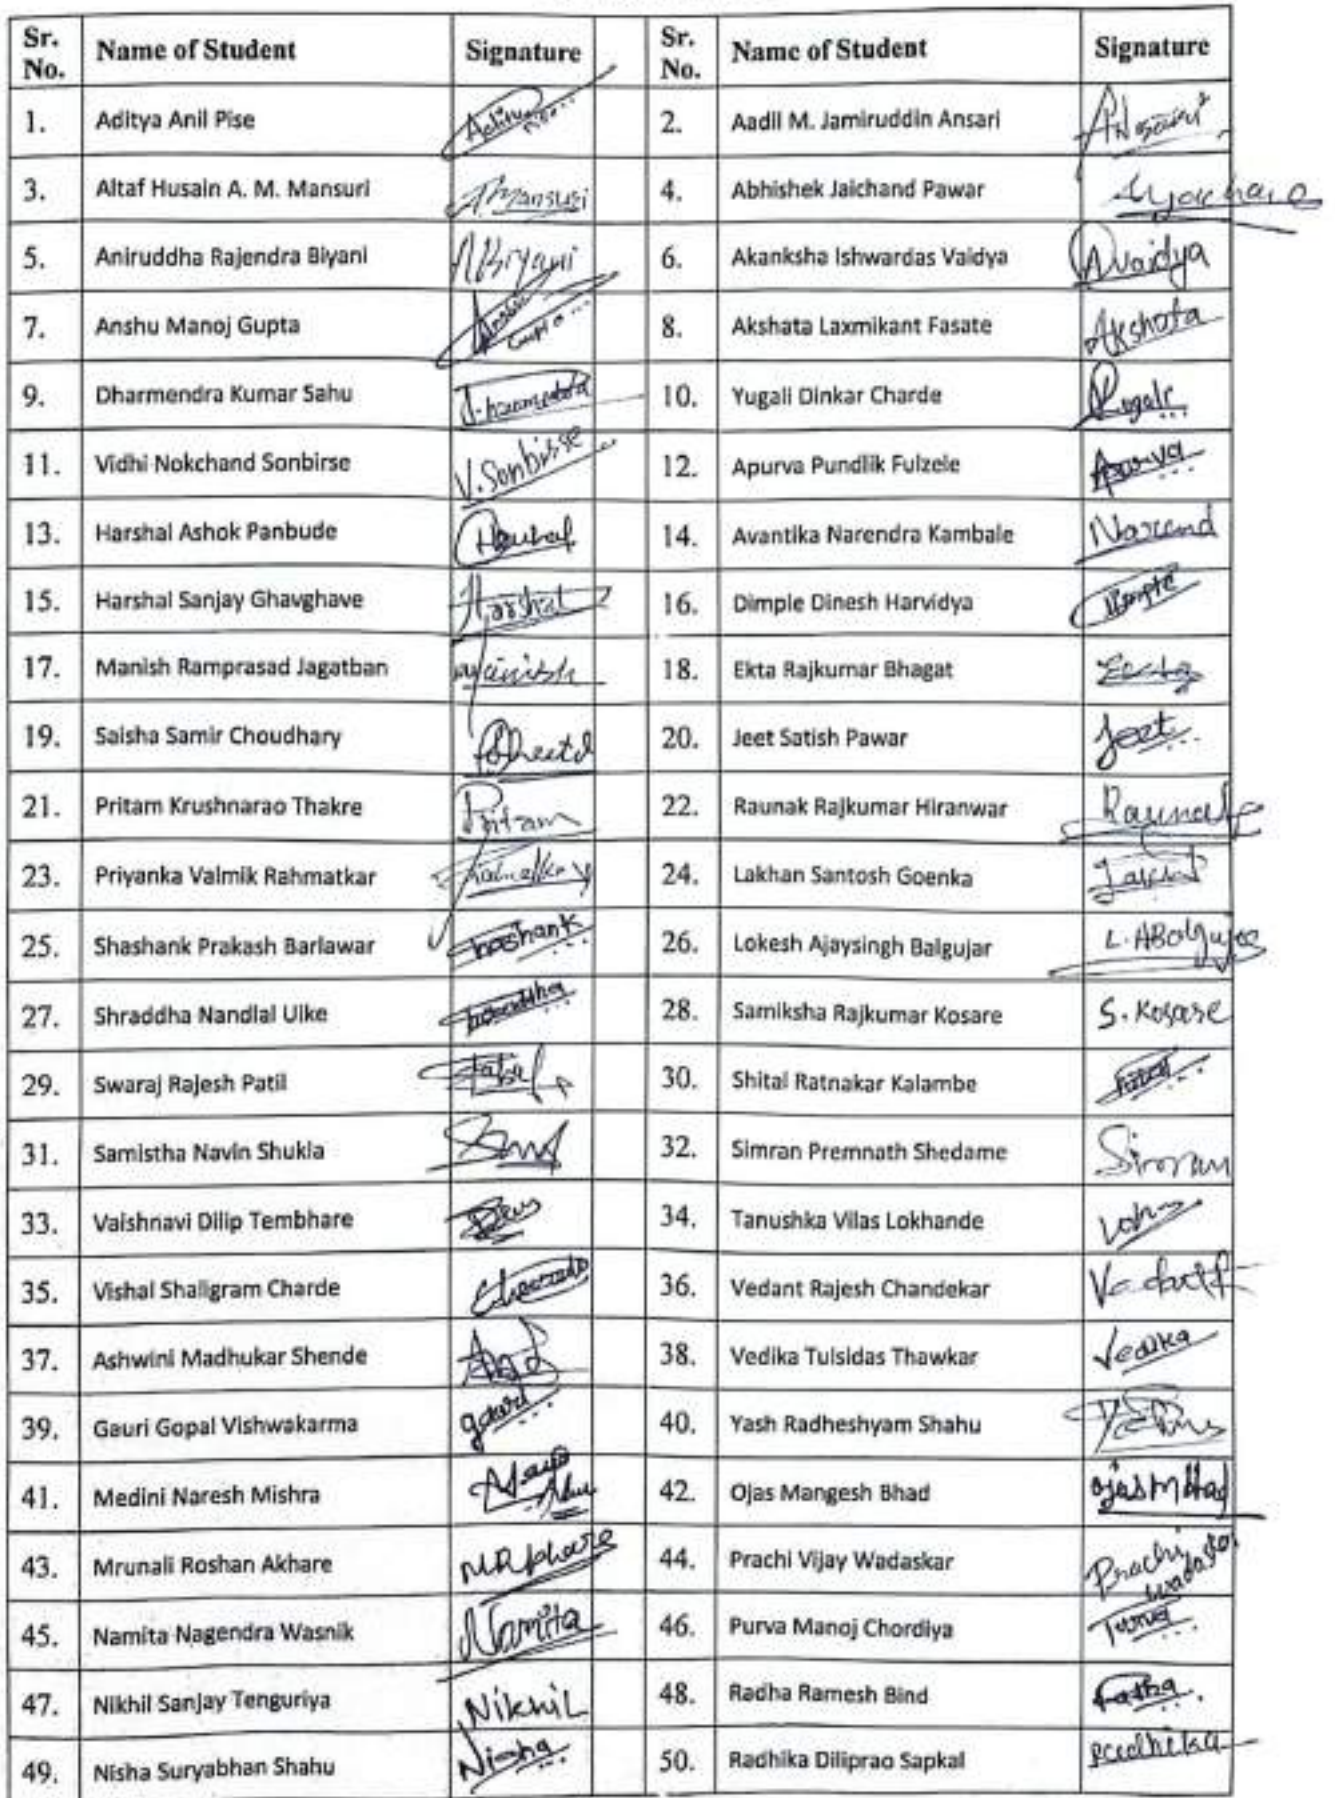 Sr. No. Name of Student Signature Sr. No. Name of Student Signature
1. Aditya Anil Pise Aditya 2. Aadil M. Jamiruddin Ansari Ansari
3. Altaf Husain A. M. Mansuri A Mansuri 4. Abhishek Jaichand Pawar
5. Aniruddha Rajendra Biyani ABiyani 6. Akanksha Ishwardas Vaidya AVaidya
7. Anshu Manoj Gupta Anshu Gupta 8. Akshata Laxmikant Fasate Akshata
9. Dharmendra Kumar Sahu 10. Yugali Dinkar Charde Yugali
11. Vidhi Nokchand Sonbirse V. Sonbirse 12. Apurva Pundlik Fulzele Apurva
13. Harshal Ashok Panbude Harshal 14. Avantika Narendra Kambale Narend
15. Harshal Sanjay Ghavghave Harshal 16. Dimple Dinesh Harvidya Dimple
17. Manish Ramprasad Jagatban Manish 18. Ekta Rajkumar Bhagat Ekta
19. Saisha Samir Choudhary 20. Jeet Satish Pawar Jeet
21. Pritam Krushnarao Thakre Pritam 22. Raunak Rajkumar Hiranwar Raunak
23. Priyanka Valmik Rahmatkar 24. Lakhan Santosh Goenka
25. Shashank Prakash Barlawar Shashank 26. Lokesh Ajaysingh Balgujar L. ABalgujar
27. Shraddha Nandlal Uike Shraddha 28. Samiksha Rajkumar Kosare S. Kosare
29. Swaraj Rajesh Patil 30. Shital Ratnakar Kalambe
31. Samistha Navin Shukla 32. Simran Premnath Shedame Simran
33. Vaishnavi Dilip Tembhare 34. Tanushka Vilas Lokhande
35. Vishal Shaligram Charde 36. Vedant Rajesh Chandekar
37. Ashwini Madhukar Shende 38. Vedika Tulsidas Thawkar Vedika
39. Gauri Gopal Vishwakarma gauri 40. Yash Radheshyam Shahu
41. Medini Naresh Mishra 42. Ojas Mangesh Bhad OjasMBhad
43. Mrunali Roshan Akhare MRAkhare 44. Prachi Vijay Wadaskar Prachi Wadaskar
45. Namita Nagendra Wasnik Namita 46. Purva Manoj Chordiya Purva
47. Nikhil Sanjay Tenguriya Nikhil 48. Radha Ramesh Bind Radha
49. Nisha Suryabhan Shahu Nisha 50. Radhika Diliprao Sapkal Radhika